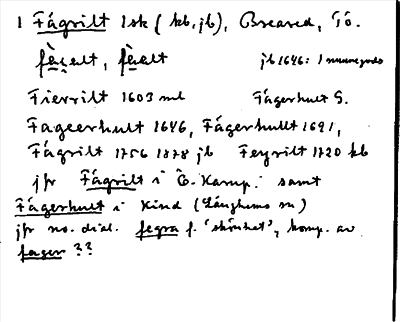 1 Fågrilt 1sk (kb, jb), Breared, Tö.
fàgalt, fàalt jb 1646: 1
Fierrilt 1603 ml Fågerhult G.
Fageerhult 1646, Fågerhullt 1691,
Fågrilt 1756 1878 jb Feyrilt 1720 kb
jfr Fågrilt i Ö. Karup. samt
Fågerhult i Kind (Länghems sn)
jfr no. dial. fegra f. 'skönhet', komp. av
fager ??